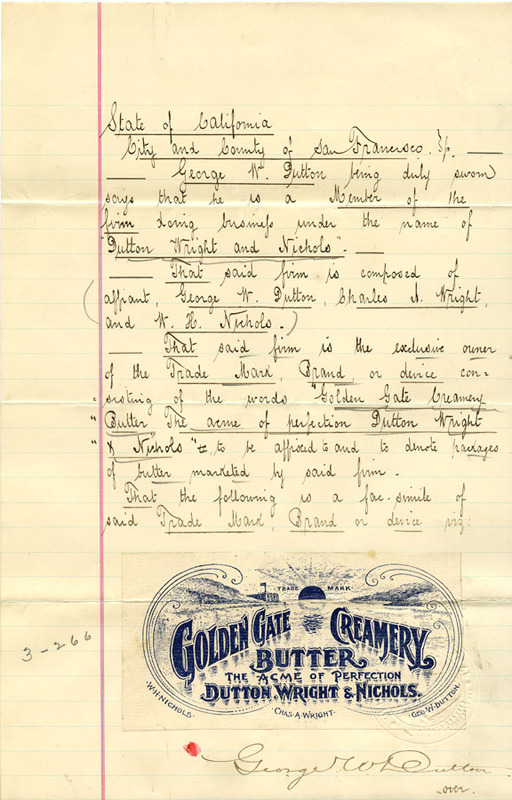 State of California
City and County of San Francisco. }ss. —
— George W. Dutton being duly sworn
says that he is a Member of the
firm doing business under the name of
"Dutton Wright and Nichols". —
— That said firm is composed of
affiant, George W. Dutton, Charles A. Wright,
and W. H. Nichols.
— That said firm is the exclusive owner
of the Trade Mark, Brand, or device con-
sisting of the words "Golden Gate Creamery
"Butter The acme of perfection Dutton Wright
"& Nichols" to be affixed to and to denote packages
of butter marketed by said firm.
That the following is a fac-simile of
said Trade Mark, Brand or device viz:
TRADE MARK
GOLDEN GATE CREAMERY
BUTTER
THE ACME OF PERFECTION
DUTTON, WRIGHT & NICHOLS.
·W.H.NICHOLS· ·CHAS·A·WRIGHT· ·GEO·W·DUTTON·
3-266
George W. Dutton
over.